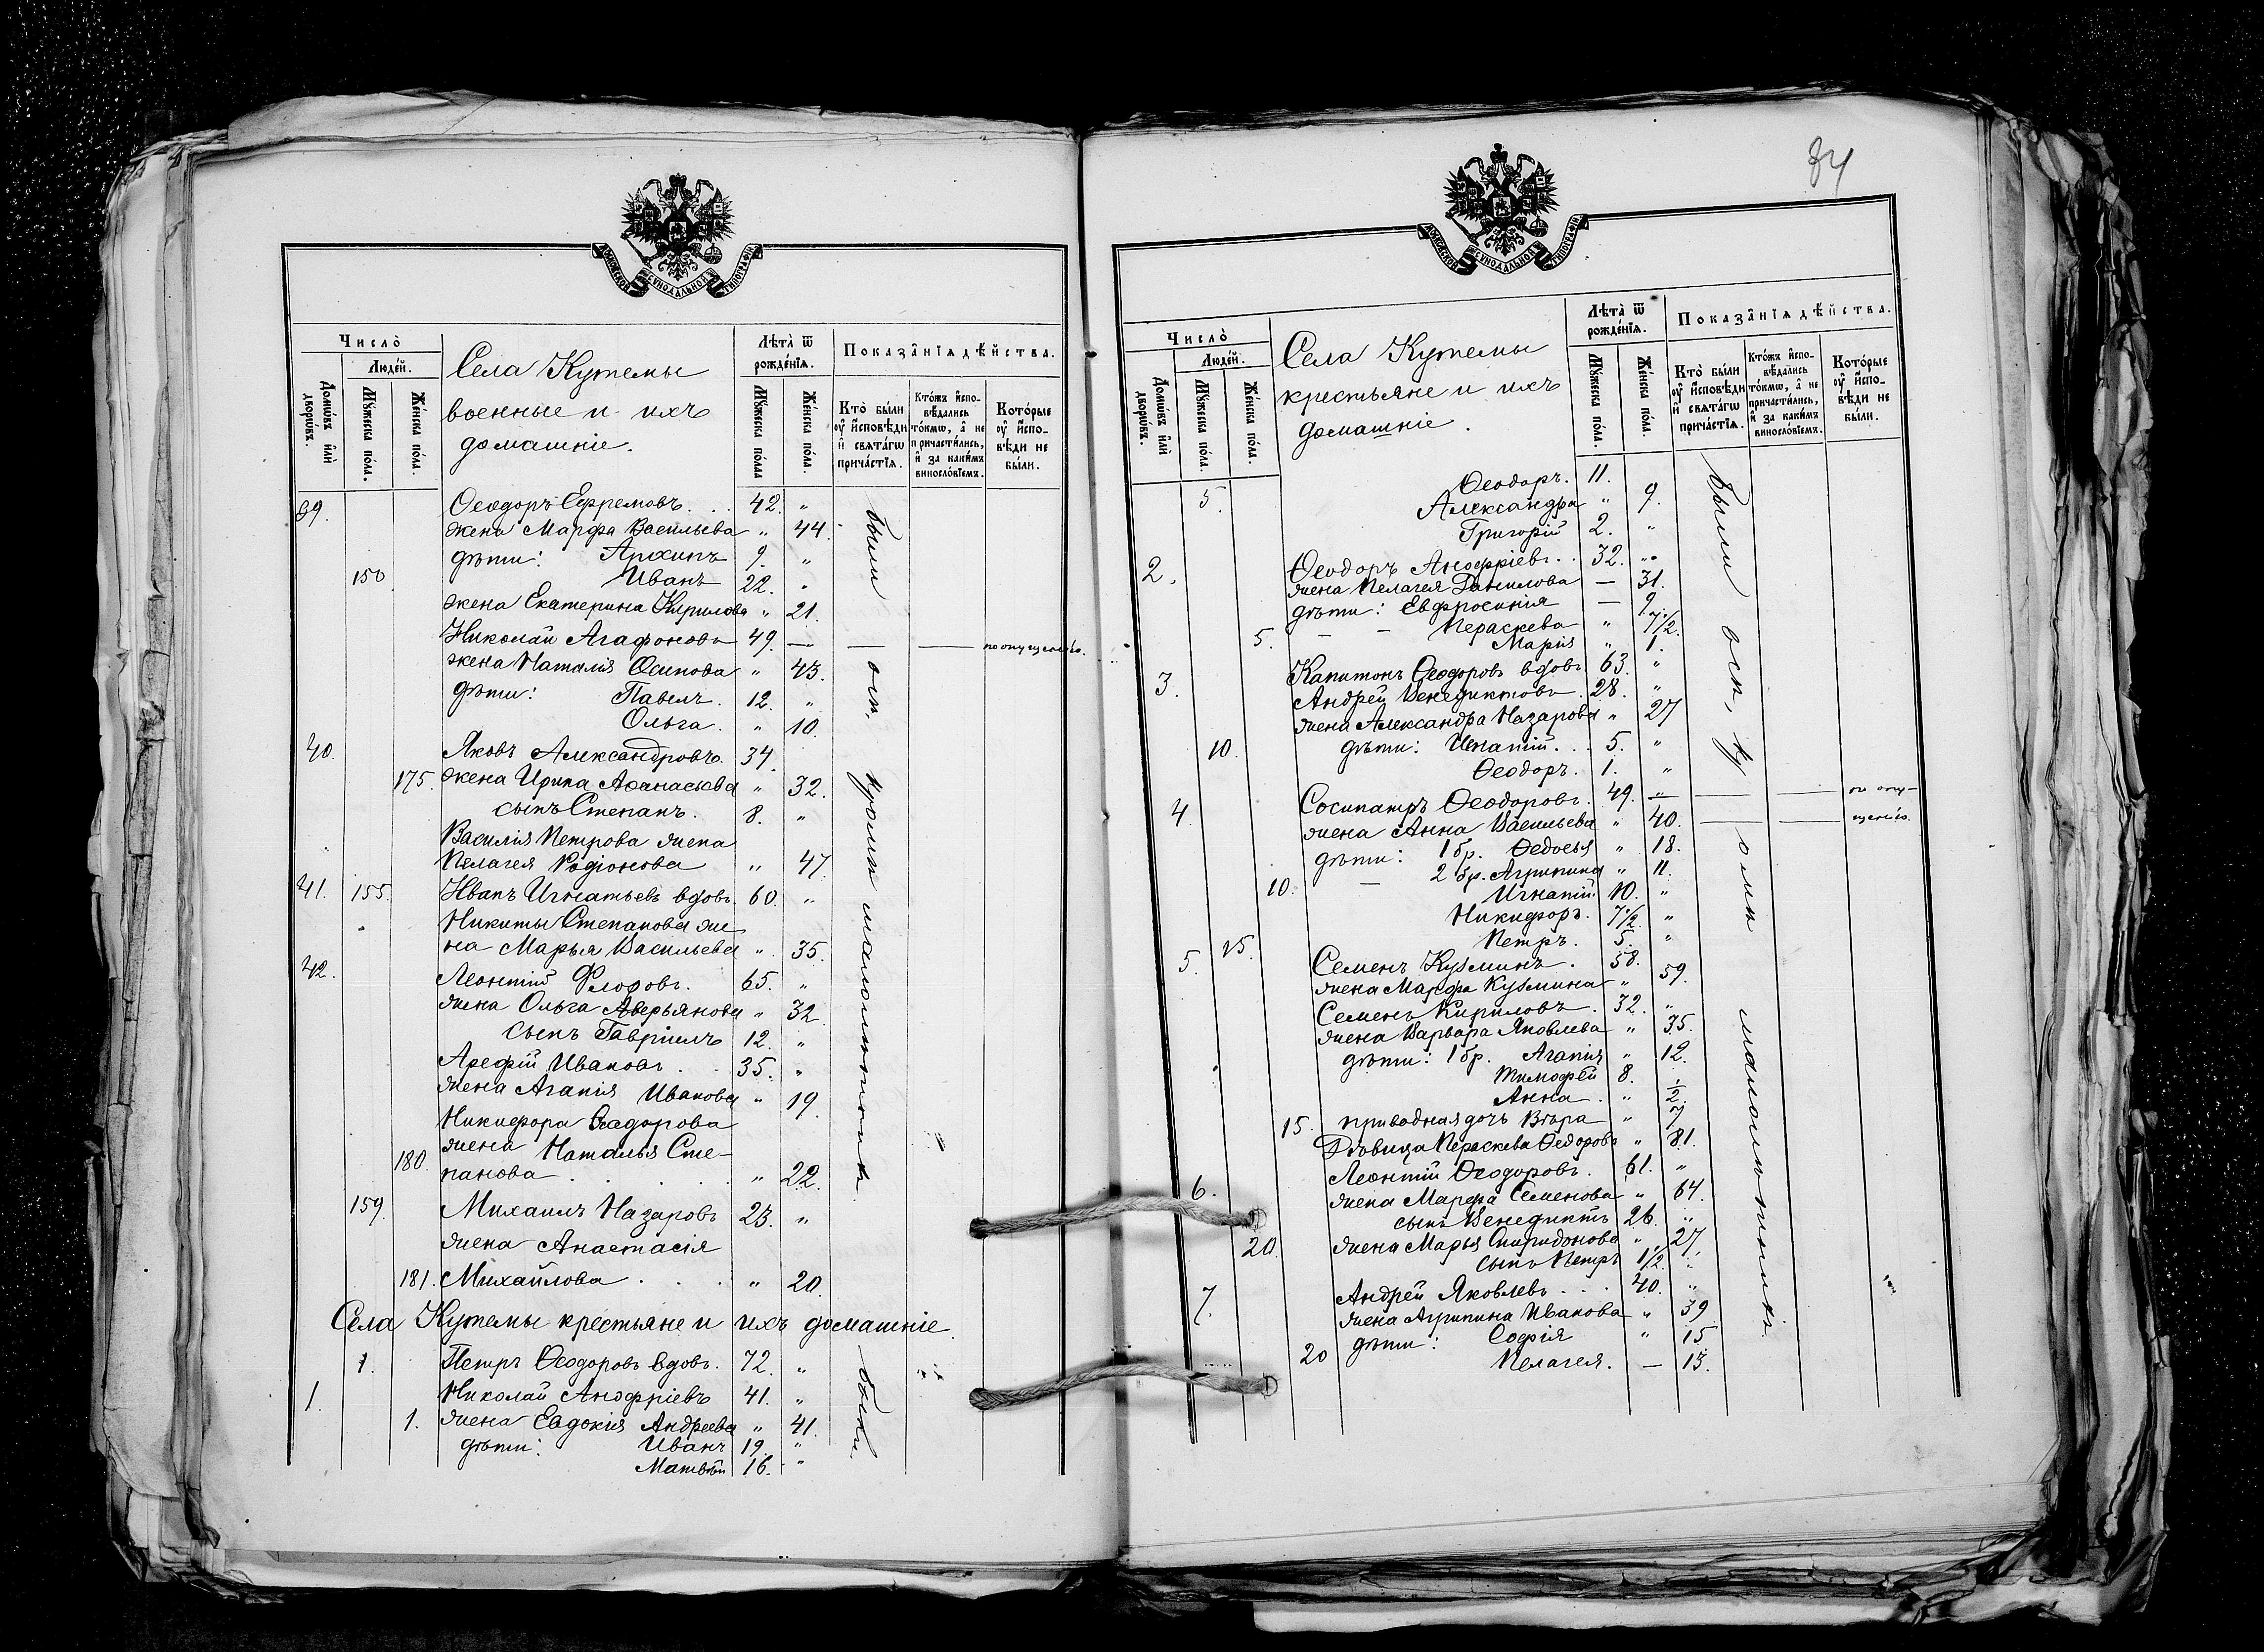 МОСКОВСКОЙ СѴНОДАЛЬНОЙ ТИПОГРАФІИ
Число̀
Люде́й.
Домѡ́въ и҆лѝ дворѡ́въ.
Мꙋ́жеска по́ла.
Же́нска по́ла.
Села Кутемы
военные и ихъ
домашніе.
Лѣ́та ѿ рожде́нїѧ.
Мꙋ́жеска по́ла
Же́нска по́ла.
Показа̑нїѧ дѣ́йства.
Кто̀ бы́ли ᲂу҆ и҆сповѣ́ди и҆ свѧта́гѡ прича́стїѧ.
Кто́жъ и҆спо-вѣ́дались то́кмѡ, а҆ не причасти́лись, и҆ за каки́мъ винословїемъ.
Кото́рые ᲂу҆ и҆спо-вѣ́ди не бы́ли.
39. Ѳеодоръ Ефремовъ. . . 42. "
жена Марфа Васильева " 44.
дѣти: Архипъ 9. "
150 Иванъ 22. "
жена Екатерина Кирилова " 21.
Николай Агафоновъ 49. — — — по опущенію.
жена Наталия Осипова " 43.
дѣти: Павелъ. 12. "
Ольга. " 10.
40. Яковъ Александровъ. 34.
175. жена Ирина Аѳанасьева " 32.
сынъ Степанъ. 8. "
Василія Петрова жена
Пелагея Родіонова " 47.
41. 155. Иванъ Игнатьевъ вдовъ. 60. "
Никиты Степанова же
на Марья Васильева " 35.
42. Леонтій Фроловъ. 65. "
жена Ольга Аверьянова " 32
сынъ Гавріилъ 12. "
Арефій Ивановъ . . 35. "
жена Агапія Иванова " 19.
Никифора Ѳеодорова
жена Наталья Сте-
180. панова . . . . " 22.
159. Михаилъ Назаровъ 23. "
жена Анастасія
181. Михайлова . . . " 20.
были оки, кромѣ малолѣтнихъ.
Села Кутемы крестьяне и ихъ домашніе.
1. Петръ Ѳеодоровъ вдовъ. 72. "
1. Николай Анофріевъ 41. "
1. жена Евдокия Андреева " 41.
дѣти: Иванъ 19. "
Матвѣй 16. "
были.
84
МОСКОВСКОЙ СѴНОДАЛЬНОЙ ТИПОГРАФІИ
Число̀
Люде́й.
Домѡ́въ и҆лѝ дворѡ́въ.
Мꙋ́жеска по́ла.
Же́нска по́ла.
Села Кутемы
крестьяне и ихъ
домашніе.
Лѣ́та ѿ рожде́нїѧ.
Мꙋ́жеска по́ла.
Же́нска по́ла.
Показа̑нїѧ дѣ́йства.
Кто̀ бы́ли ᲂу҆ и҆сповѣ́ди и҆ свѧта́гѡ прича́стїѧ.
Кто́жъ и҆спо-вѣ́дались то́кмѡ, а҆ не причасти́лись, и҆ за каки́мъ винословїемъ.
Кото́рые ᲂу҆ и҆спо-вѣ́ди не бы́ли.
Ѳеодоръ. 11.
5. Александра " 9.
Григорій 2. "
2. Ѳеодоръ Анофріевъ . . 32. "
жена Пелагея Данилова — 31.
дѣти: Евфросинія — 9.
— — Пераскева " 7 1/2.
5. Марія " 1.
3. Капитонъ Ѳеодоровъ вдовъ. 63. "
Андрей Венедиктовъ . 28. "
жена Александра Назарова " 27
10. дѣти: Игнатій. . . 5. "
Ѳеодоръ. 1. "
4. Сосипатръ Ѳеодоровъ. 49. — — — по опу-
жена Анна Васильева " 40. — — щенію.
дѣти: 1 бр. Ѳедосья " 18.
10. — 2 бр. Агрипина " 11.
Игнатій 10. "
Никифоръ. 7 1/2. "
15. Петръ. 5. "
5. Семенъ Кузминъ . 58.
жена Марфа Кузмина " 59.
Семенъ Кириловъ . 32. "
жена Варвара Яковлева " 35.
дѣти: 1 бр. Агапія " 12.
Тимофей 8. "
Анна . " 1/2.
15. приводная дочь Вѣра " 7
Дѣвица Пераскева Ѳедорова " 81.
6. Леонтій Ѳеодоровъ. 61. "
жена Марфа Семенова " 64.
сынъ Венедиктъ 26. "
20. жена Марья Спиридонова " 27
сынъ Петръ 1/2. "
7. Андрей Яковлевъ . . . 40. "
жена Агрипина Иванова " 39
дѣти: Софія " 15
20 Пелагея. — 13.
были оки, кромѣ малолѣтнихъ.